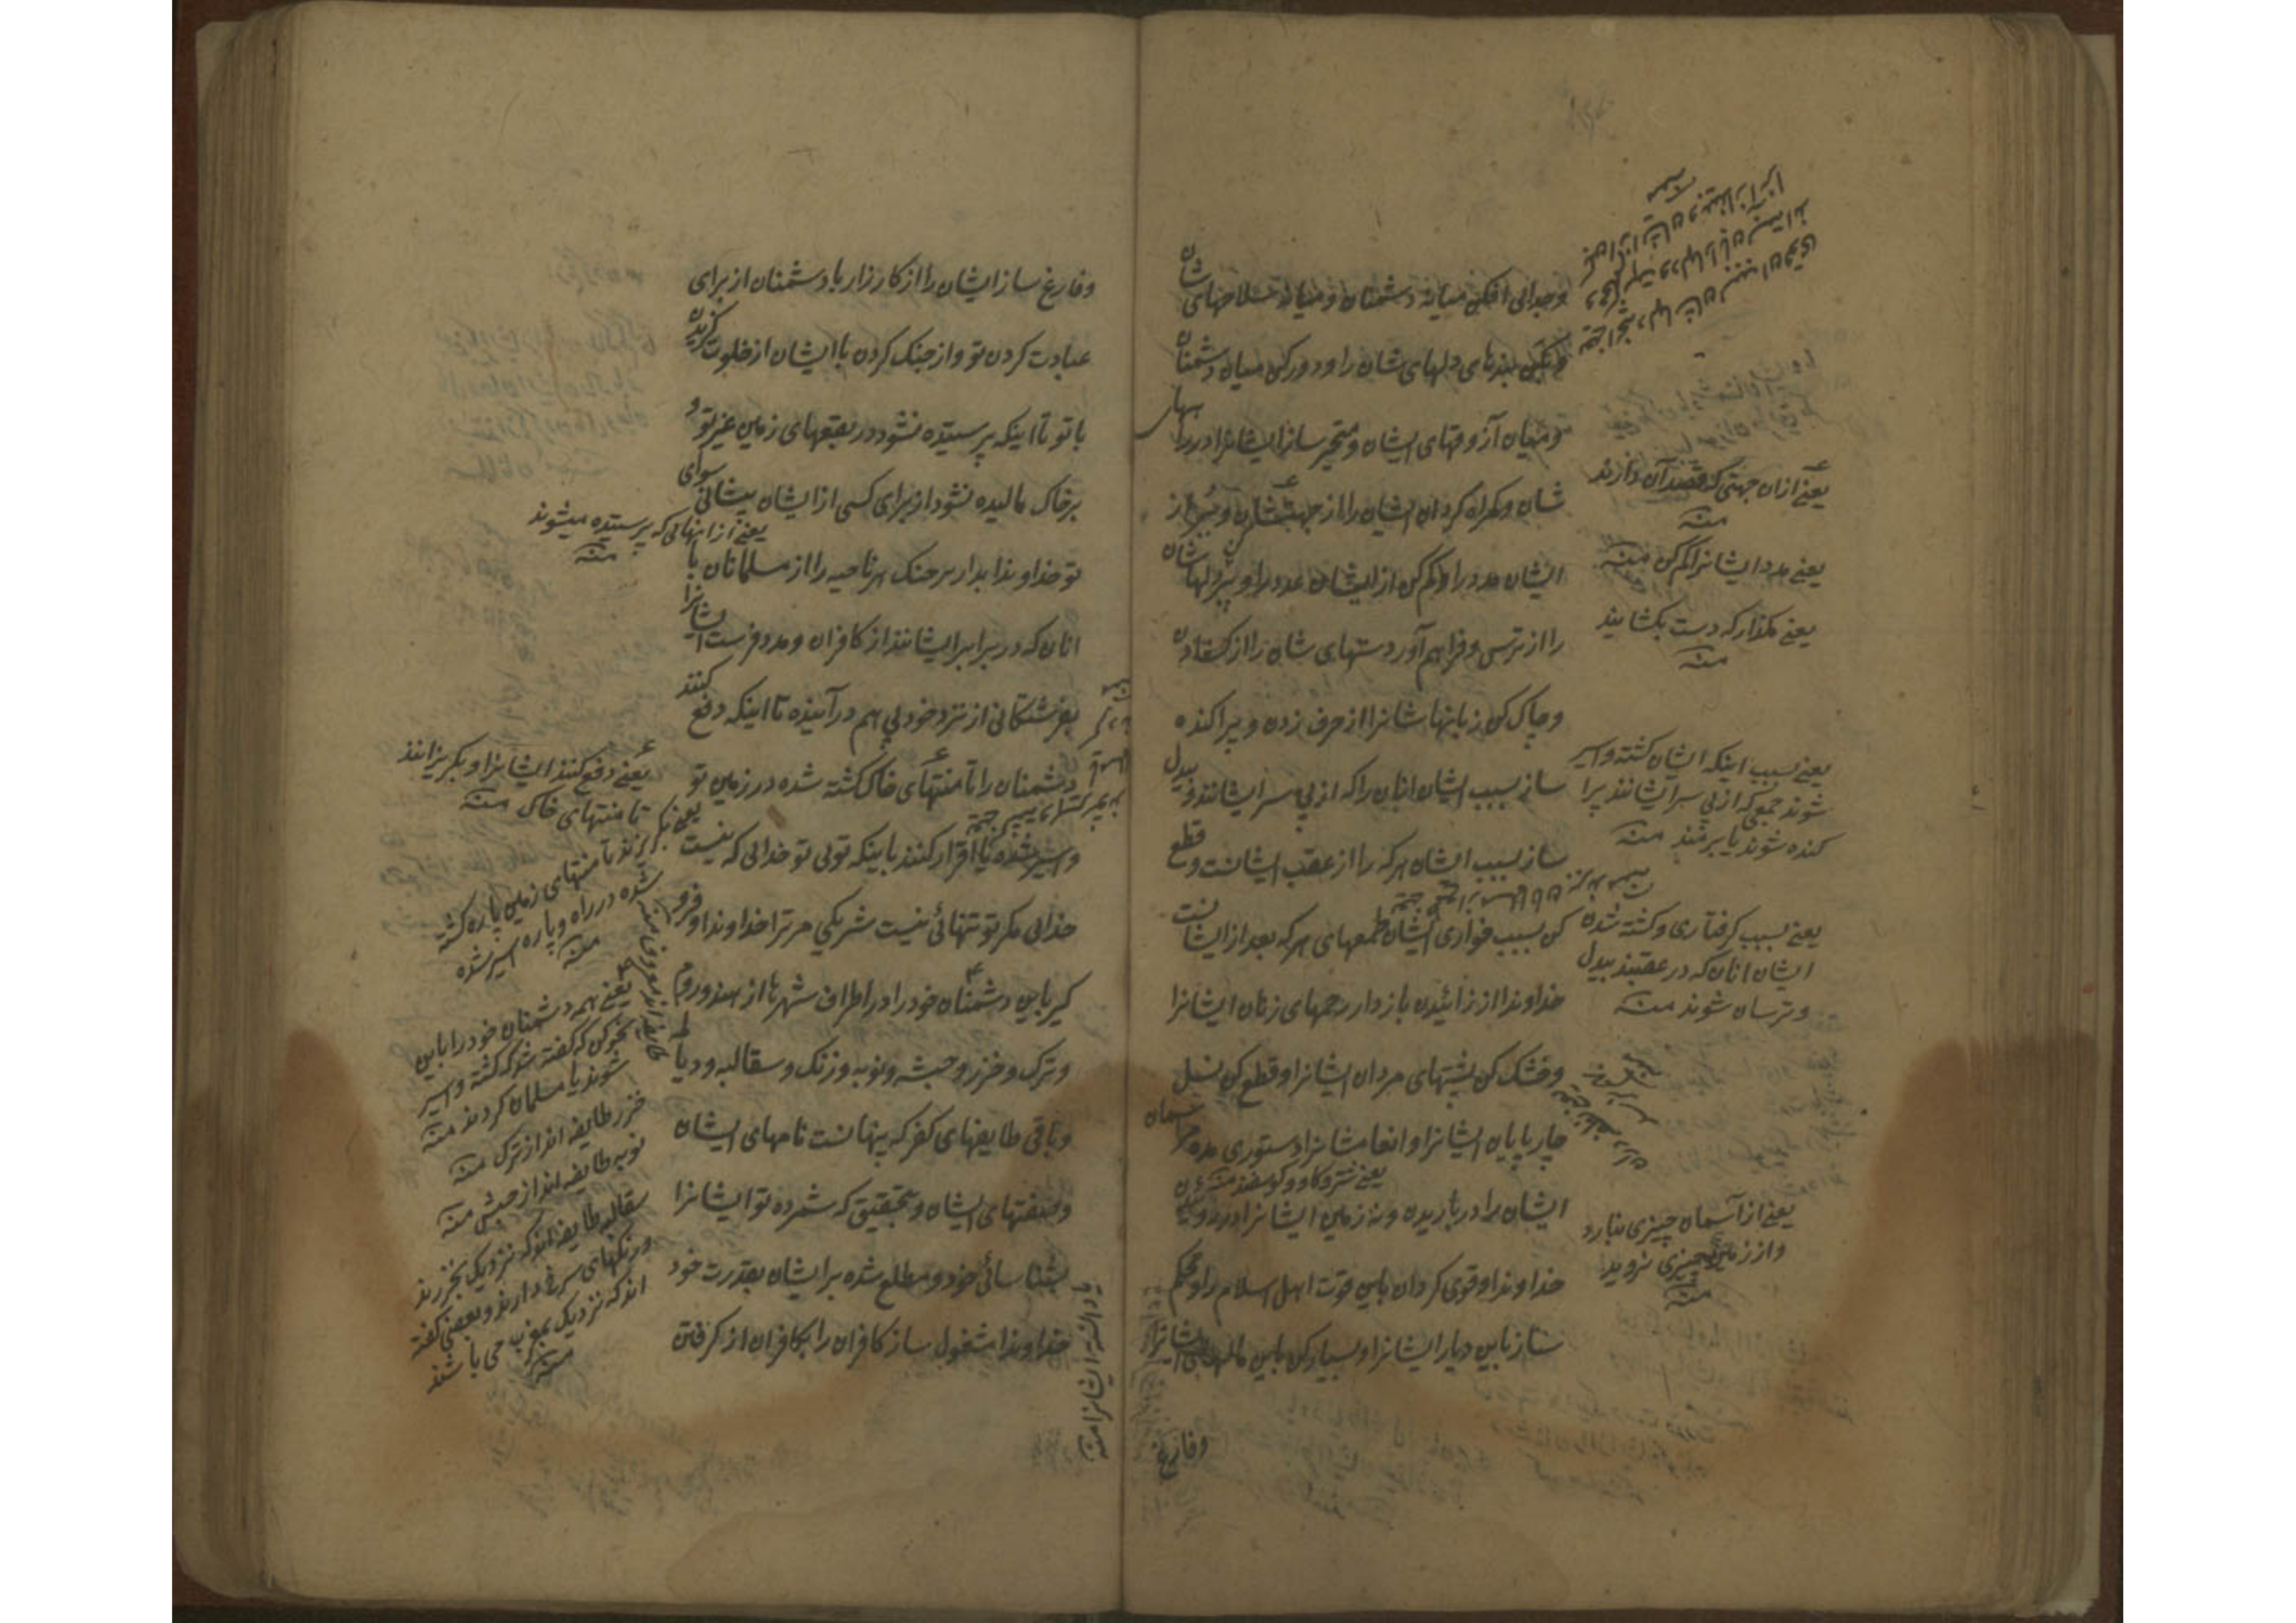 وجدائی افکن میانه دشمنان و میانه سلاحهای شان
وبکن بندهای دلهای شان را و دور کن میان دشمنان
و میان آزوقهای ایشان و متحیر ساز ایشانرا در راههای
شان و گمراه کردان ایشان را از جهتشان و ببر از
ایشان مدد را و کم کن از ایشان عدد را و پر کن دلهاشان
را از ترس و فراهم آور دستهای شان را از کشادن
وچاک کن زبانهاشانرا از حرف زدن و پراکنده
ساز بسبب ایشان انان را که از پی سر ایشانند و بیدل
ساز بسبب ایشان هر که را از عقب ایشانست و قطع
کن بسبب خواری ایشان طمعهای هر که بعد از ایشانست
خداوندا از زائیدن باز دار رحمهای زنان ایشانرا
وخشک کن پشتهای مردان ایشانرا و قطع کن نسل
چارپایان ایشانرا و انعامشانرا دستوری مده مر آسمان
یعنی شتر و کاو و کوسفند منه
ایشان را در باریدن و نه زمین ایشانرا در روییدن
خداوندا و قوی کردان باین قوت اهل اسلام را و محکم
ساز باین دیار ایشانرا و بسیار کن باین مالهای ایشانرا
وفارغ
یعنی ازان جهتی که قصد آن دارند
منه
یعنی مدد ایشانرا کم کن منه
یعنی مکذار که دست بکشایند
منه
یعنی بسبب اینکه ایشان کشته و اسیر
شوند جمعی که از پی سر ایشانند پرا
کنده شوند یا برمند منه
یعنی بسبب کرفتاری و کشته شدن
ایشان انان که در عقبند بیدل
و ترسان شوند منه
یعنی از آسمان چیزی نبارد
واز زمین چیزی نروید
منه
وفارغ ساز ایشان را از کارزار با دشمنان از برای
عبادت کردن تو و از جنک کردن با ایشان از خلوت کزیدن
با تو تا اینکه پرسیتده نشود در بقعهای زمین غیر تو و
بر خاک مالیده نشود از برای کسی از ایشان پیشانی سوای
تو خداوندا بدار سر جنک هر ناحیه را از مسلمانان با
انان که در برابر ایشانند از کافران و مدد فرست ایشانرا
بفرشتکانی از نزد خود پی هم درآینده تا اینکه دفع کنند
دشمنان را تا منتهای خاک کشته شده در زمین تو
و اسیر شده یا اقرار کنند باینکه توئی تو خدائی که نیست
خدائی مکر تو تنهائی نیست شریکی مر ترا خداوندا و فرو
کیر باین دشمنان خود را در اطراف شهرها از هند و روم
و ترک و خزر و حبشه و نوبه و زنک و سقالبه و دیالمه
و باقی طایفهای کفر که پنهانست نامهای ایشان
و صفتهای ایشان و بتحقیق که شمرده تو ایشانرا
بشناسائی خود و مطلع شده بر ایشان بقدرت خود
خداوندا مشغول ساز کافران را بکافران از کرفتن
یعنی از اینهائی که پرسیتده میشوند
منه
یعنی دفع کنند ایشانرا و بکریزانند
تا منتهای خاک منه
یعنی بکریزند تا منتهای زمین پاره کشته
شده در راه و پاره اسیر شده
منه
یعنی همه دشمنان خود را باین
نحو کن که کفته شد که کشته و اسیر
شوند یا مسلمان کردند منه
خزر طایفه اند از ترک منه
نوبه طایفه اند از حبش منه
سقالبه طایفه اند که نزدیک بخزرند
و رنکهای سرخ دارند و بعضی کفته
اند که نزدیک بمغرب می باشند
منه